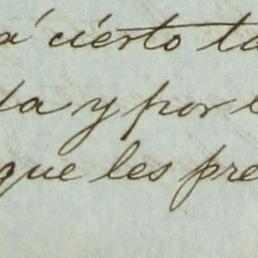 á cierto ta
da y por l
que les pre